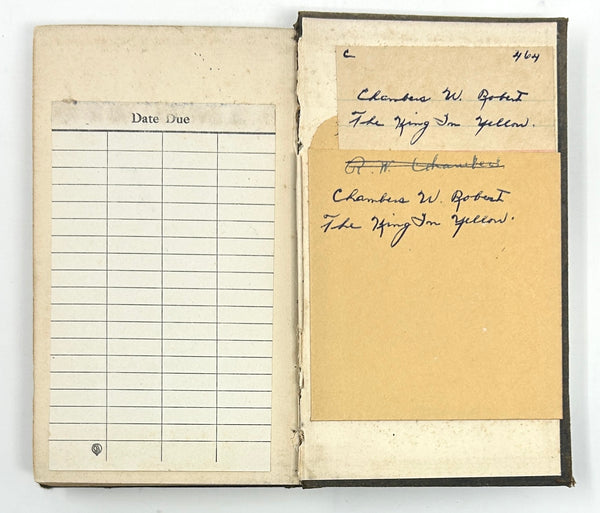 Date Due
C 464
Chambers W. Robert
The King In Yellow.
R. W. Chambers
Chambers W. Robert
The King In Yellow.